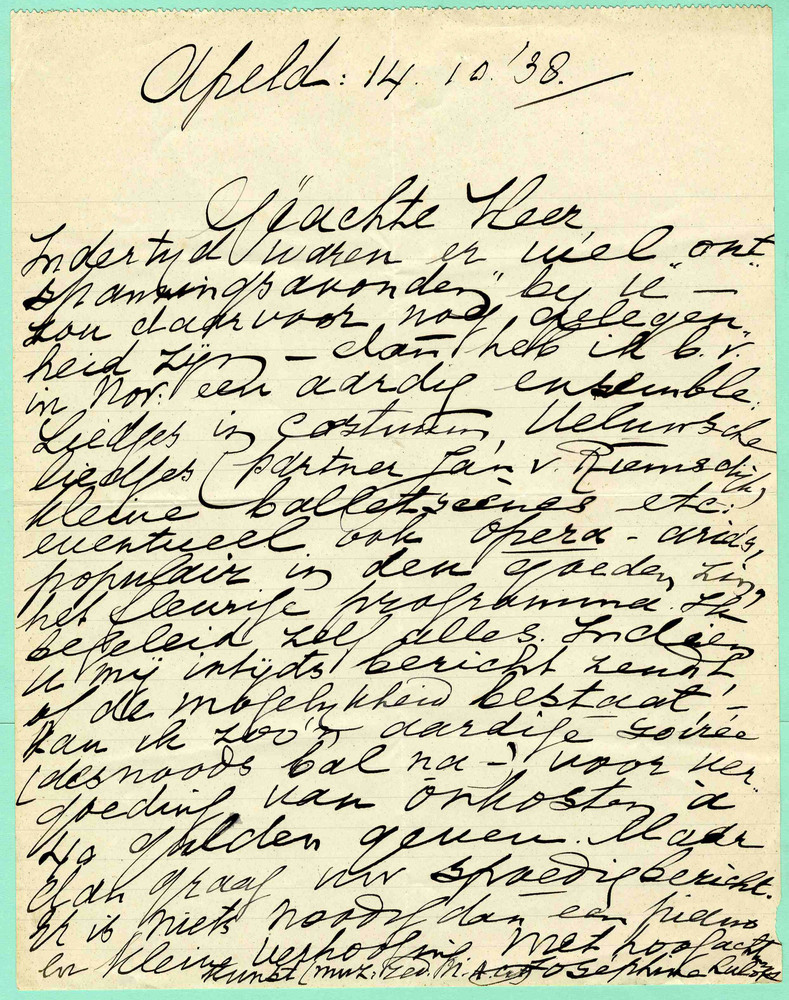 Apeld: 14. 10. '38.
Geachte Heer,
Indertyd waren er veel "ont-
spanningsavonden" by U —
zou daarvoor nog gelegen-
heid zyn — dan heb ik b.v.
in Nov. een aardig ensemble:
Liedjes in costuum, Veluwsche
liedjes (partner Jan v. Riemsdijk)
kleine balletscènes etc:
eventueel ook opera-aria's,
populair in den goeden zin,
het fleurige programma. Ik
begeleid zelf alles. Indien
U mij intyds bericht zendt,
of de mogelykheid bestaat, –
kan ik zoo'n aardige soirée
(desnoods bal na –) voor ver-
goeding van onkosten à
40 gulden geven. Maar
dan graag uw spoedig bericht.
Er is niets noodig dan een piano
en kleine verhooging. Met hoogachting
Kunst (muz: red. Josephine